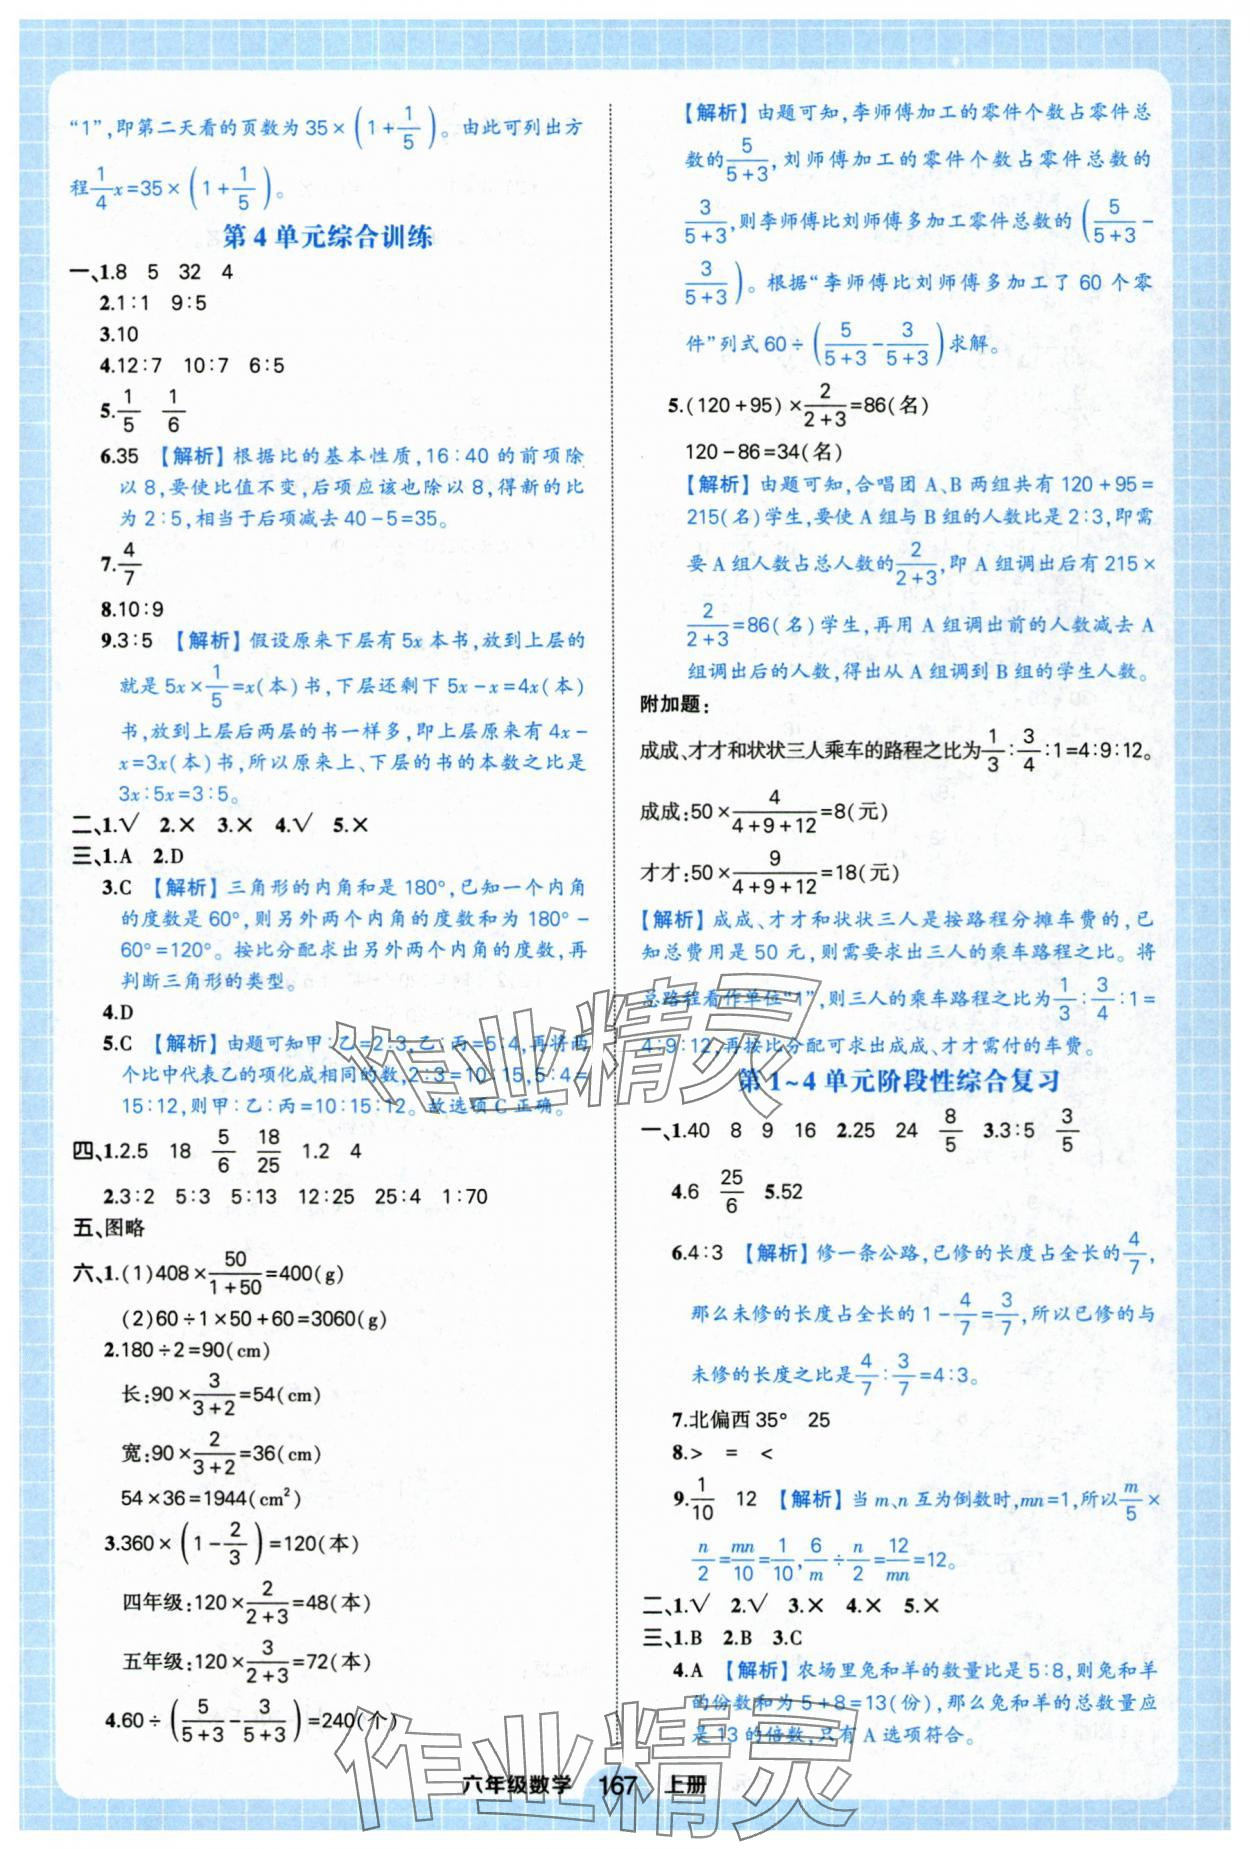 “1”,即第二天看的页数为35×(1+1/5)。由此可列出方
程1/4x=35×(1+1/5)。
第4单元综合训练
一、1.8 5 32 4
2.1∶1 9∶5
3.10
4.12∶7 10∶7 6∶5
5.1/5 1/6
6.35 【解析】根据比的基本性质,16∶40的前项除
以8,要使比值不变,后项应该也除以8,得新的比
为2∶5,相当于后项减去40-5=35。
7.4/7
8.10∶9
9.3∶5 【解析】假设原来下层有5x本书,放到上层的
就是5x×1/5=x(本)书,下层还剩下5x-x=4x(本)
书,放到上层后两层的书一样多,即上层原来有4x-
x=3x(本)书,所以原来上、下层的书的本数之比是
3x∶5x=3∶5。
二、1.√ 2.× 3.× 4.√ 5.×
三、1.A 2.D
3.C 【解析】三角形的内角和是180°,已知一个内角
的度数是60°,则另外两个内角的度数和为180°-
60°=120°。按比分配求出另外两个内角的度数,再
判断三角形的类型。
4.D
5.C 【解析】由题可知甲∶乙=2∶3,乙∶丙=5∶4,再将两
个比中代表乙的项化成相同的数,2∶3=10∶15,5∶4=
15∶12,则甲∶乙∶丙=10∶15∶12。故选项C正确。
四、1.2.5 18 5/6 18/25 1.2 4
2.3∶2 5∶3 5∶13 12∶25 25∶4 1∶70
五、图略
六、1.(1)408×50/(1+50)=400(g)
(2)60÷1×50+60=3060(g)
2.180÷2=90(cm)
长:90×3/(3+2)=54(cm)
宽:90×2/(3+2)=36(cm)
54×36=1944(cm²)
3.360×(1-2/3)=120(本)
四年级:120×2/(2+3)=48(本)
五年级:120×3/(2+3)=72(本)
4.60÷(5/(5+3)-3/(5+3))=240(个)
【解析】由题可知,李师傅加工的零件个数占零件总
数的5/(5+3),刘师傅加工的零件个数占零件总数的
3/(5+3),则李师傅比刘师傅多加工零件总数的(5/(5+3)-
3/(5+3))。根据“李师傅比刘师傅多加工了60个零
件”列式60÷(5/(5+3)-3/(5+3))求解。
5.(120+95)×2/(2+3)=86(名)
120-86=34(名)
【解析】由题可知,合唱团A、B两组共有120+95=
215(名)学生,要使A组与B组的人数比是2∶3,即需
要A组人数占总人数的2/(2+3),即A组调出后有215×
2/(2+3)=86(名)学生,再用A组调出前的人数减去A
组调出后的人数,得出从A组调到B组的学生人数。
附加题:
成成、才才和状状三人乘车的路程之比为1/3∶3/4∶1=4∶9∶12。
成成:50×4/(4+9+12)=8(元)
才才:50×9/(4+9+12)=18(元)
【解析】成成、才才和状状三人是按路程分摊车费的,已
知总费用是50元,则需要求出三人的乘车路程之比。将
总路程看作单位“1”,则三人的乘车路程之比为1/3∶3/4∶1=
4∶9∶12,再按比分配可求出成成、才才需付的车费。
第1~4单元阶段性综合复习
一、1.40 8 9 16 2.25 24 8/5 3.3∶5 3/5
4.6 25/6 5.52
6.4∶3 【解析】修一条公路,已修的长度占全长的4/7,
那么未修的长度占全长的1-4/7=3/7,所以已修的与
未修的长度之比是4/7∶3/7=4∶3。
7.北偏西35° 25
8.> = <
9.1/10 12 【解析】当m、n互为倒数时,mn=1,所以m/5×
n/2=mn/10=1/10,6/m÷n/2=12/mn=12。
二、1.√ 2.√ 3.× 4.× 5.×
三、1.B 2.B 3.C
4.A 【解析】农场里兔和羊的数量比是5∶8,则兔和羊
的份数和为5+8=13(份),那么兔和羊的总数量应
是13的倍数,只有A选项符合。
六年级数学 167 上册
作业精灵
作业精灵